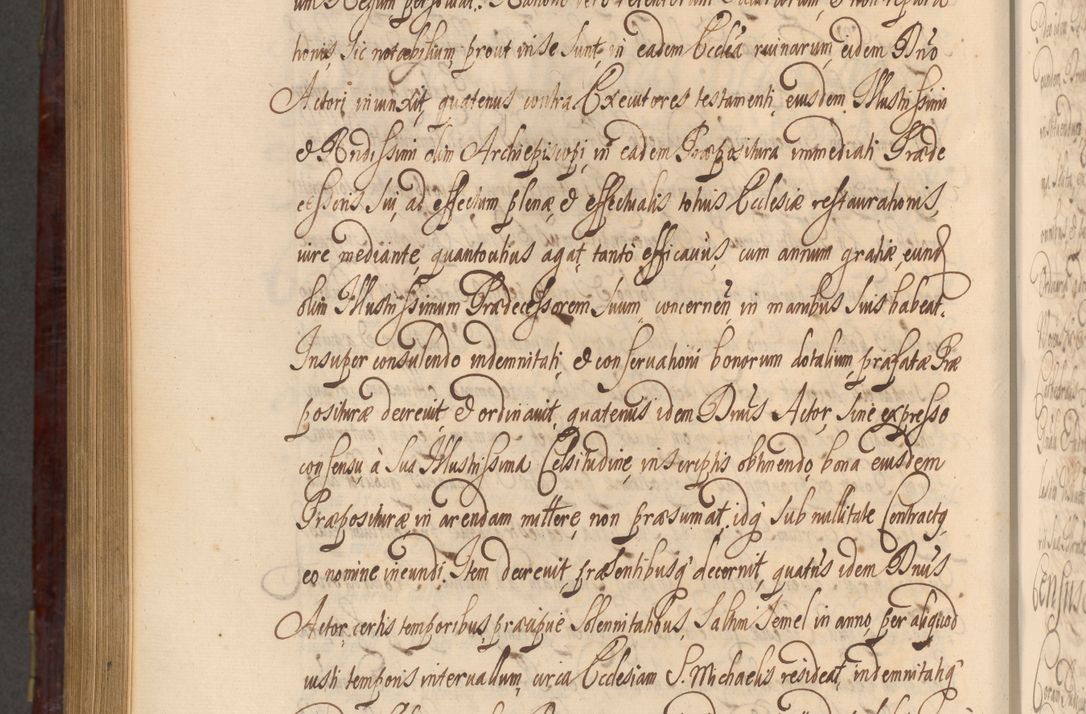 honis, sic notabilium, prout in se sunt, in eadem Ecclia ruinarum, eidem Dno
Actori iniunxit, quatenus contra Executores testamenti, eiusdem Illustrissimi
& Rndissimi olim Archiepiscopi, in eadem Præpositura immediati Præde
cessoris sui, ad effectum plenæ, & effectualis totius Ecclesiæ restaurationis,
iure mediante, quantocitius agat, tanto efficacius, cum annum gratiæ, eund
olim Illustrissimum Prædecessorem Suum concernen, in manibus suis habeat.
Insuper consulendo indemnitati, & conservationi bonorum dotalium, præfatæ Præ
posituræ decrevit, & ordinavit, quatenus idem Dnus Actor, sine expresso
consensu à Sua Illustrissima Celsitudine, in scriptis obtinendo, bona eiusdem
Præposituræ in arendam mittere, non præsumat, idq sub nullitate Contractq
eo nomine ineundi. Item decrevit, præsentibusq decernit, quatnus idem Dnus
Actor, certis temporibus, præcipuè solennitatibus, saltim semel in anno, per aliquod
iusti temporis intervallum, circa Ecclesiam S. Michaelis resideat, indemnitatiq